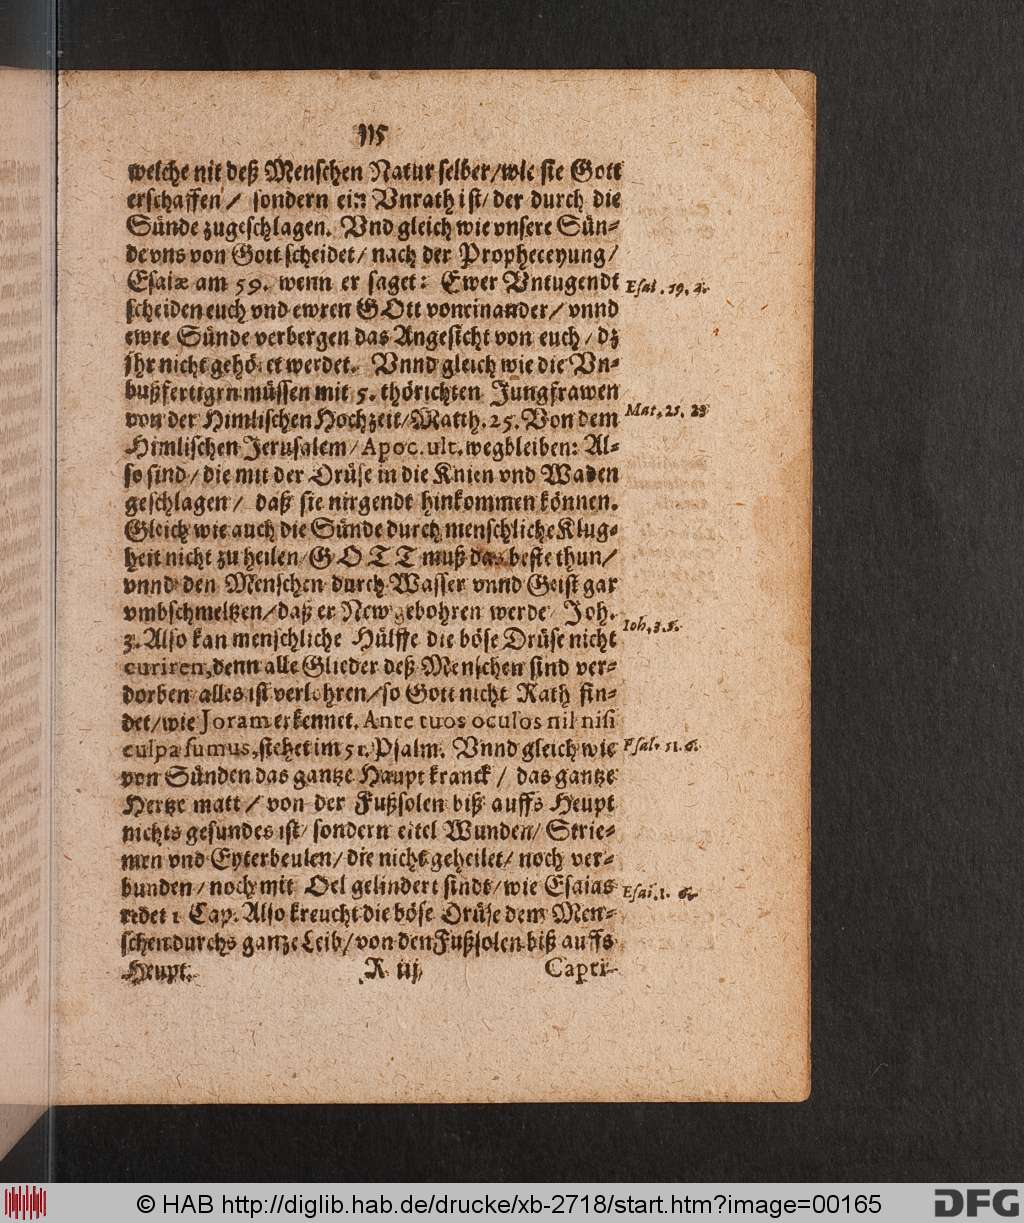 115
welche nit deß Menschen Natur selber/wie sie Gott
erschaffen / sondern ein Vnrath ist/ der durch die
Sünde zugeschlagen. Vnd gleich wie vnsere Sün-
de vns von Gott scheidet/ nach der Propheceyung/
Esaiæ am 59. wenn er saget: Ewer Vntugendt
Esai. 19. 2.
scheiden euch vnd ewren GOtt voneinander/ vnnd
ewre Sünde verbergen das Angesicht von euch/ dz
jhr nicht gehöret werdet. Vnnd gleich wie die Vn-
bußfertigen müssen mit 5. thörichten Jungfrawen
von der Himlischen Hochzeit/Matth. 25. Von dem
Mat. 25. 28
Himlischen Jerusalem/ Apoc. ult. wegbleiben: Al-
so sind/ die mit der Drüse in die Knien vnd Waden
geschlagen/ daß sie nirgendt hinkommen können.
Gleich wie auch die Sünde durch menschliche Klug-
heit nicht zu heilen/ GOTT muß das beste thun/
vnnd den Menschen durch Wasser vnnd Geist gar
vmbschmeltzen/daß er New gebohren werde/ Joh.
Ioh. 3. 5.
3. Also kan menschliche Hülffe die böse Drüse nicht
curiren, denn alle Glieder deß Menschen sind ver-
dorben alles ist verlohren/so Gott nicht Rath fin-
det/wie Joram erkennet. Ante tuos oculos nil nisi
culpa sumus, stehet im 51. Psalm. Vnnd gleich wie
Psal. 51. 6.
von Sünden das gantze Haupt kranck / das gantze
Hertze matt / von der Fußsolen biß auffs Heupt
nichts gesundes ist/ sondern eitel Wunden/ Strie-
men vnd Eyterbeulen/ die nicht geheilet/ noch ver-
bunden/ noch mit Oel gelindert sindt/ wie Esaias
Esai. 1. 6.
redet 1 Cap. Also kreucht die böse Drüse dem Men-
schen durchs gantze Leib/ von den Fußsolen biß auffs
Heupt.
R iij
Capti-
© HAB http://diglib.hab.de/drucke/xb-2718/start.htm?image=00165
DFG